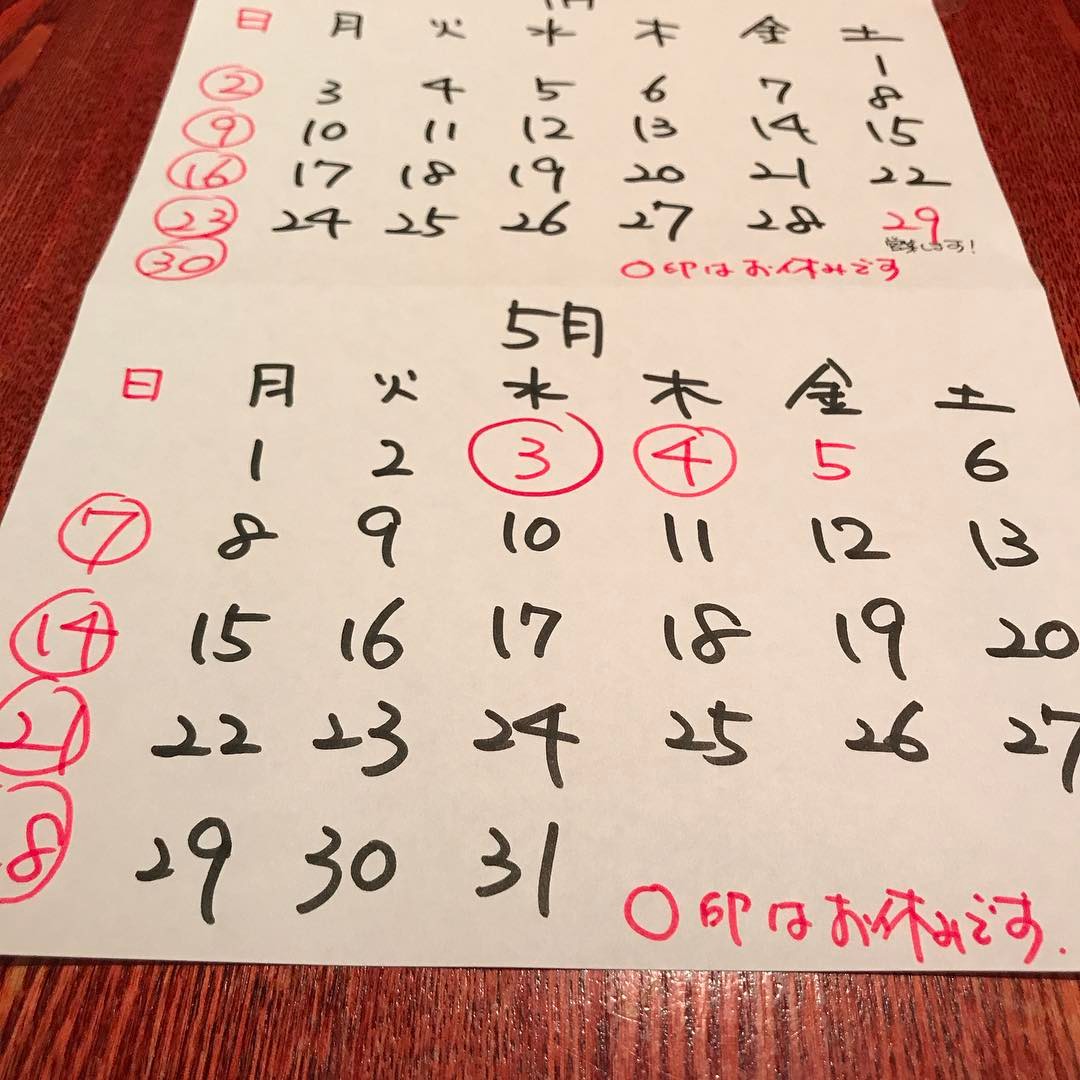 日 月 火 水 木 金 土
1
2 3 4 5 6 7 8
9 10 11 12 13 14 15
16 17 18 19 20 21 22
23 24 25 26 27 28 29
営業します!
30
○印はお休みです
5月
日 月 火 水 木 金 土
1 2 3 4 5 6
7 8 9 10 11 12 13
14 15 16 17 18 19 20
21 22 23 24 25 26 27
28 29 30 31
○印はお休みです.